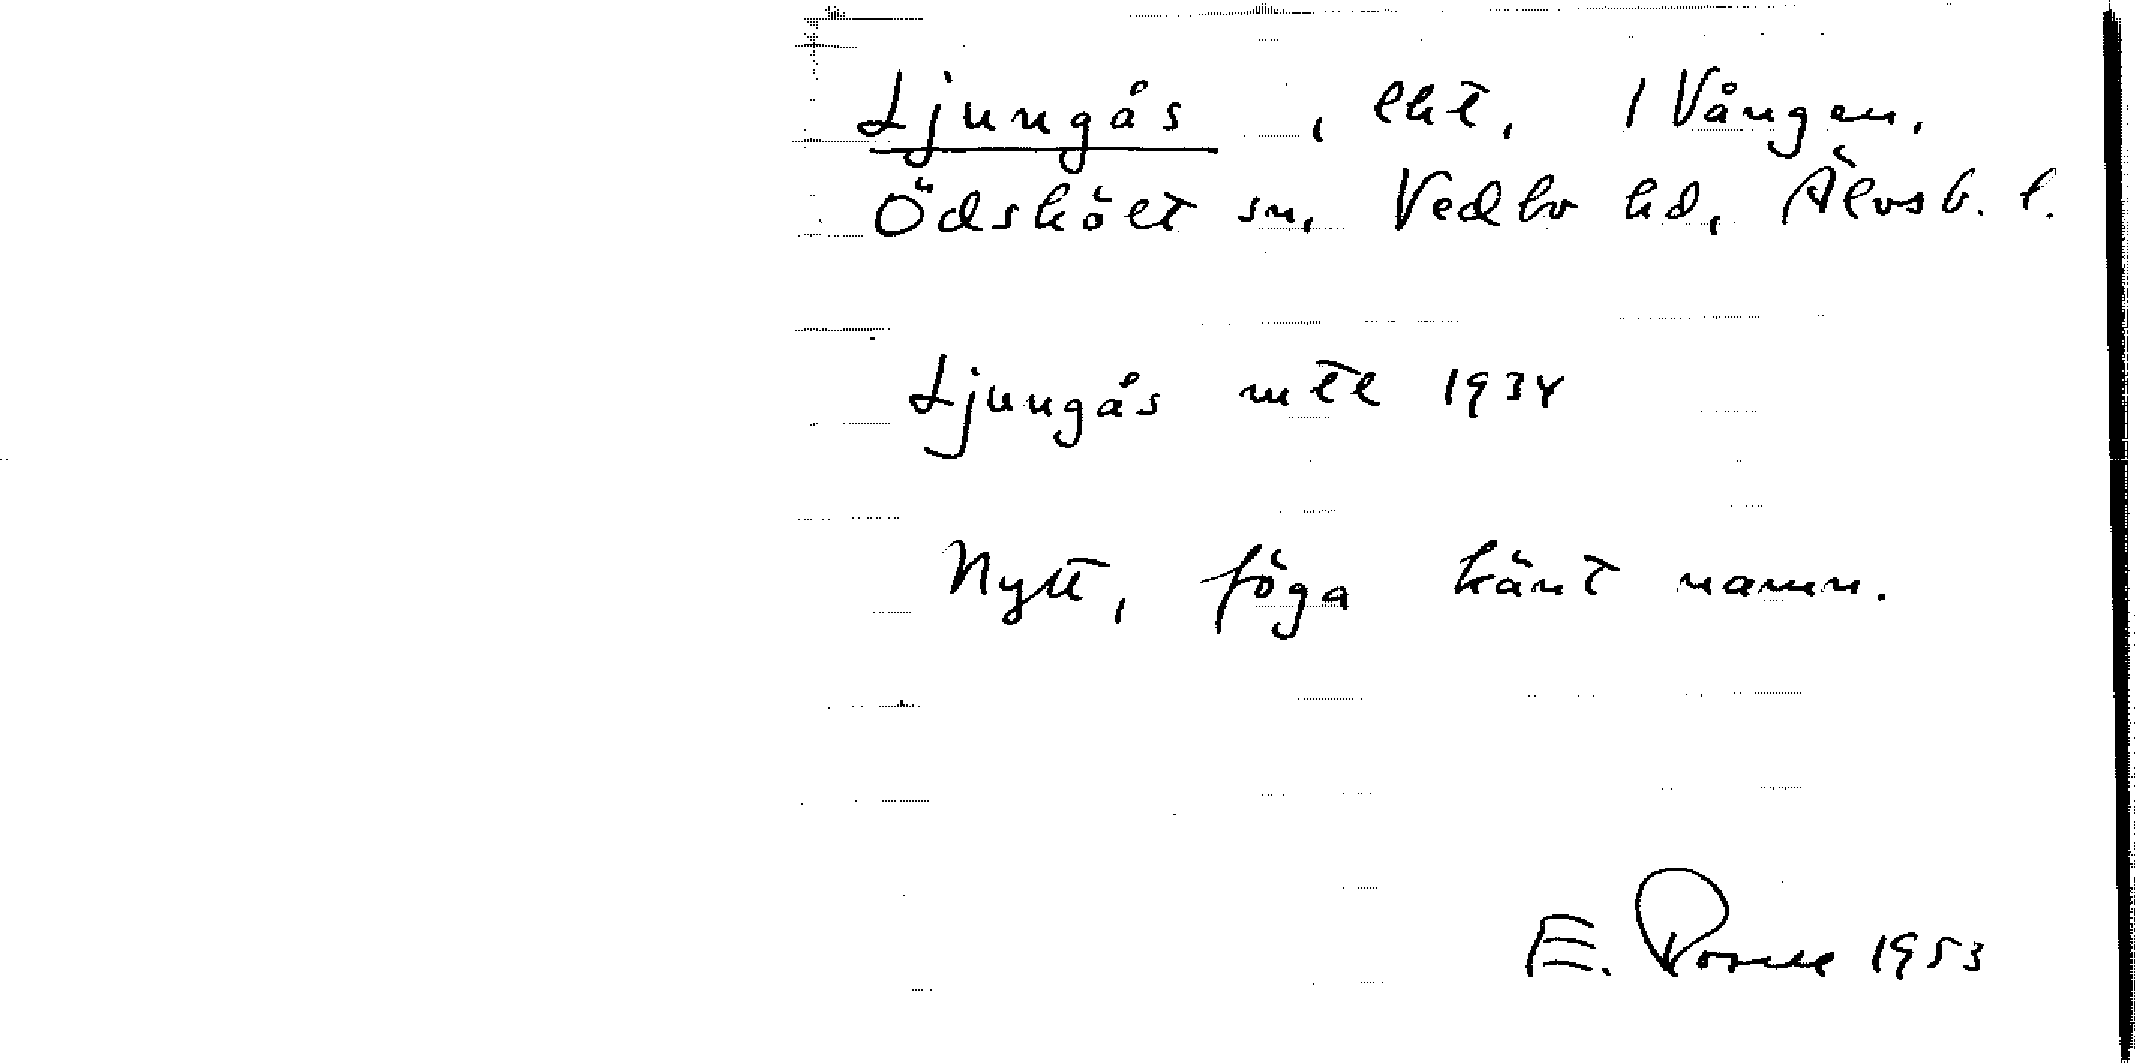 Ljungås, lht, 1 Vången,
Ödskölt sn, Vedbo hd, Älvsb. l.
Ljungås mtl 1934
Nytt, föga känt namn.
E. 1953